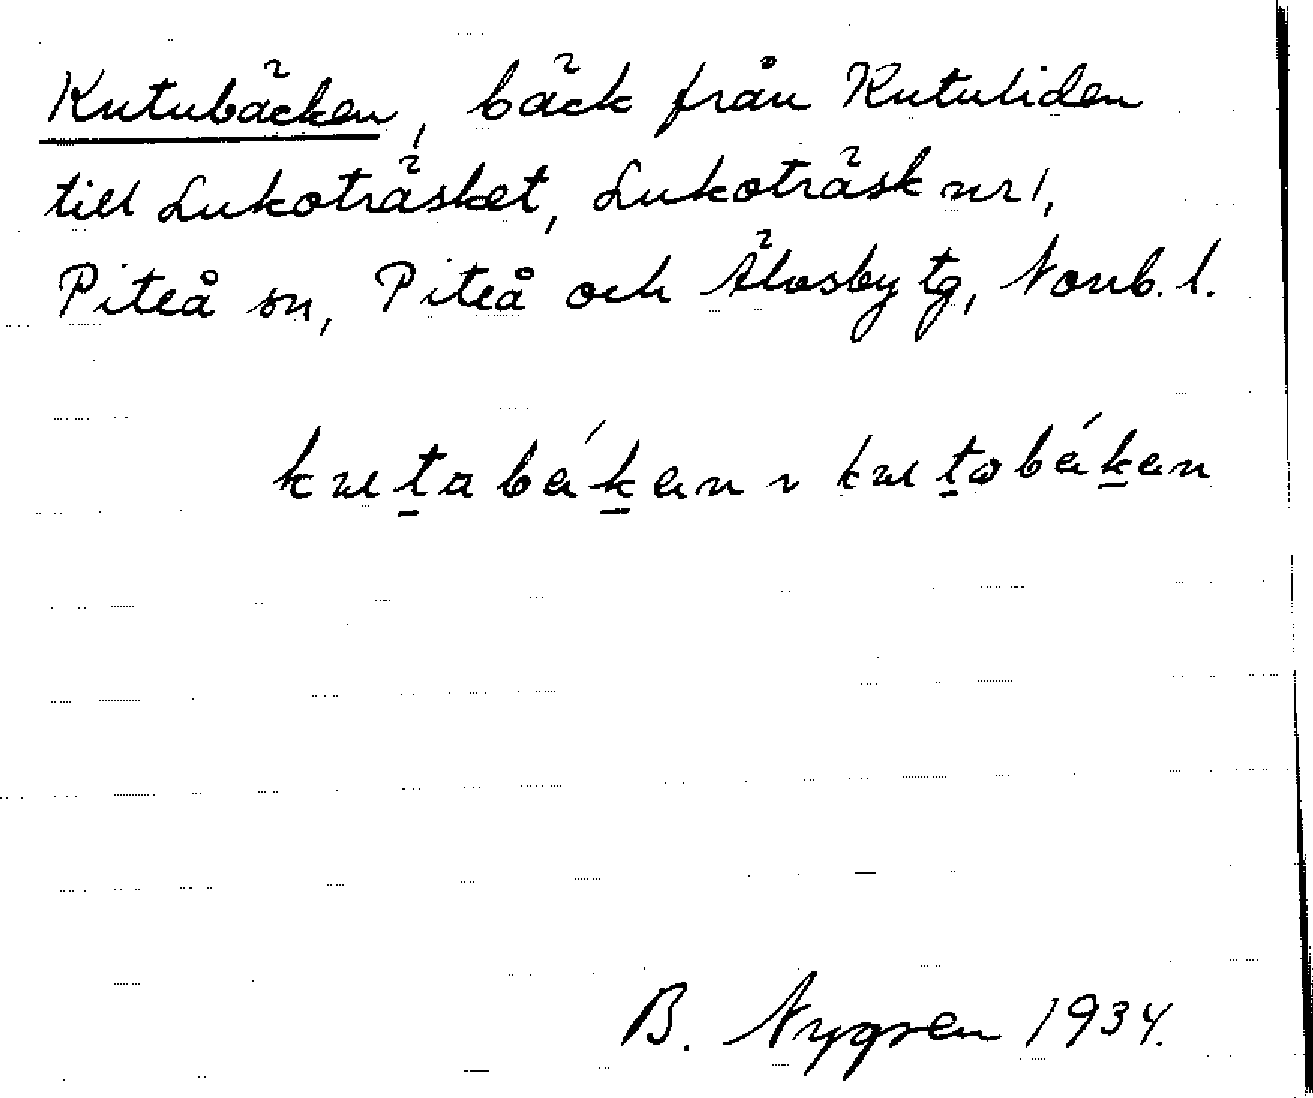 Kutubäcken, bäck från Kutuliden
till Lukoträsket, Lukoträsk nr 1,
Piteå sn, Piteå och Älvsby tg, Norrb. l.
B. Nygren 1934.